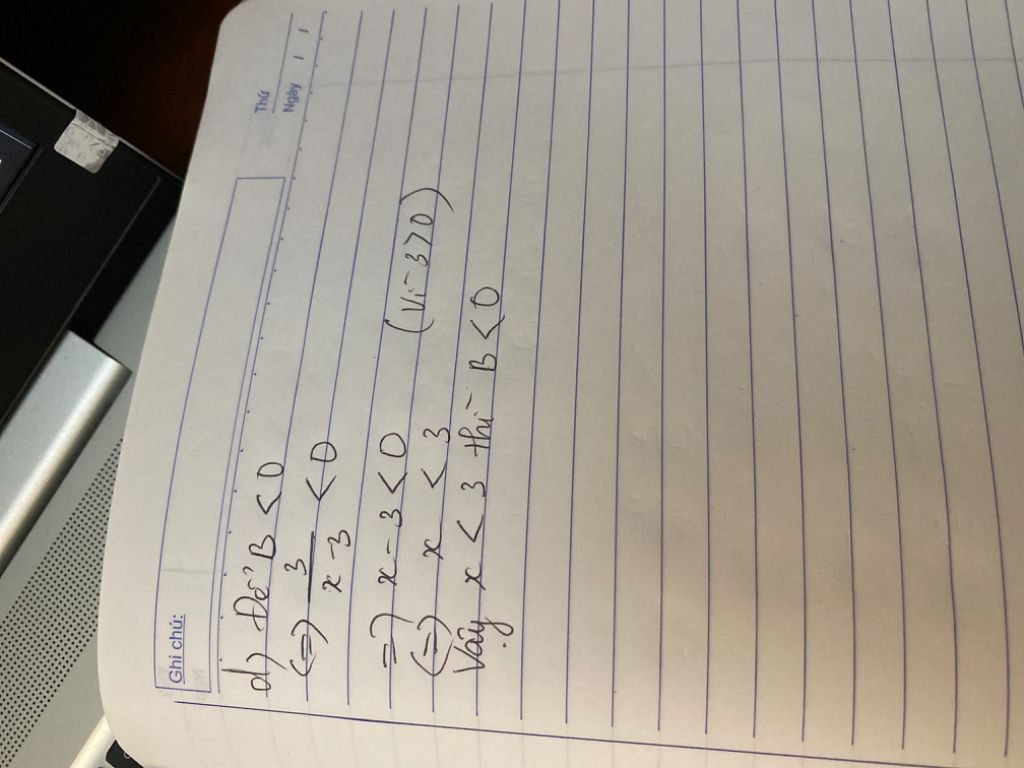 Ghi chú:
Thứ
Ngày / /
d) Để B < 0
(=) 3/(x-3) < 0
=) x - 3 < 0 (Vì 3 > 0)
(=) x < 3
Vậy x < 3 thì B < 0